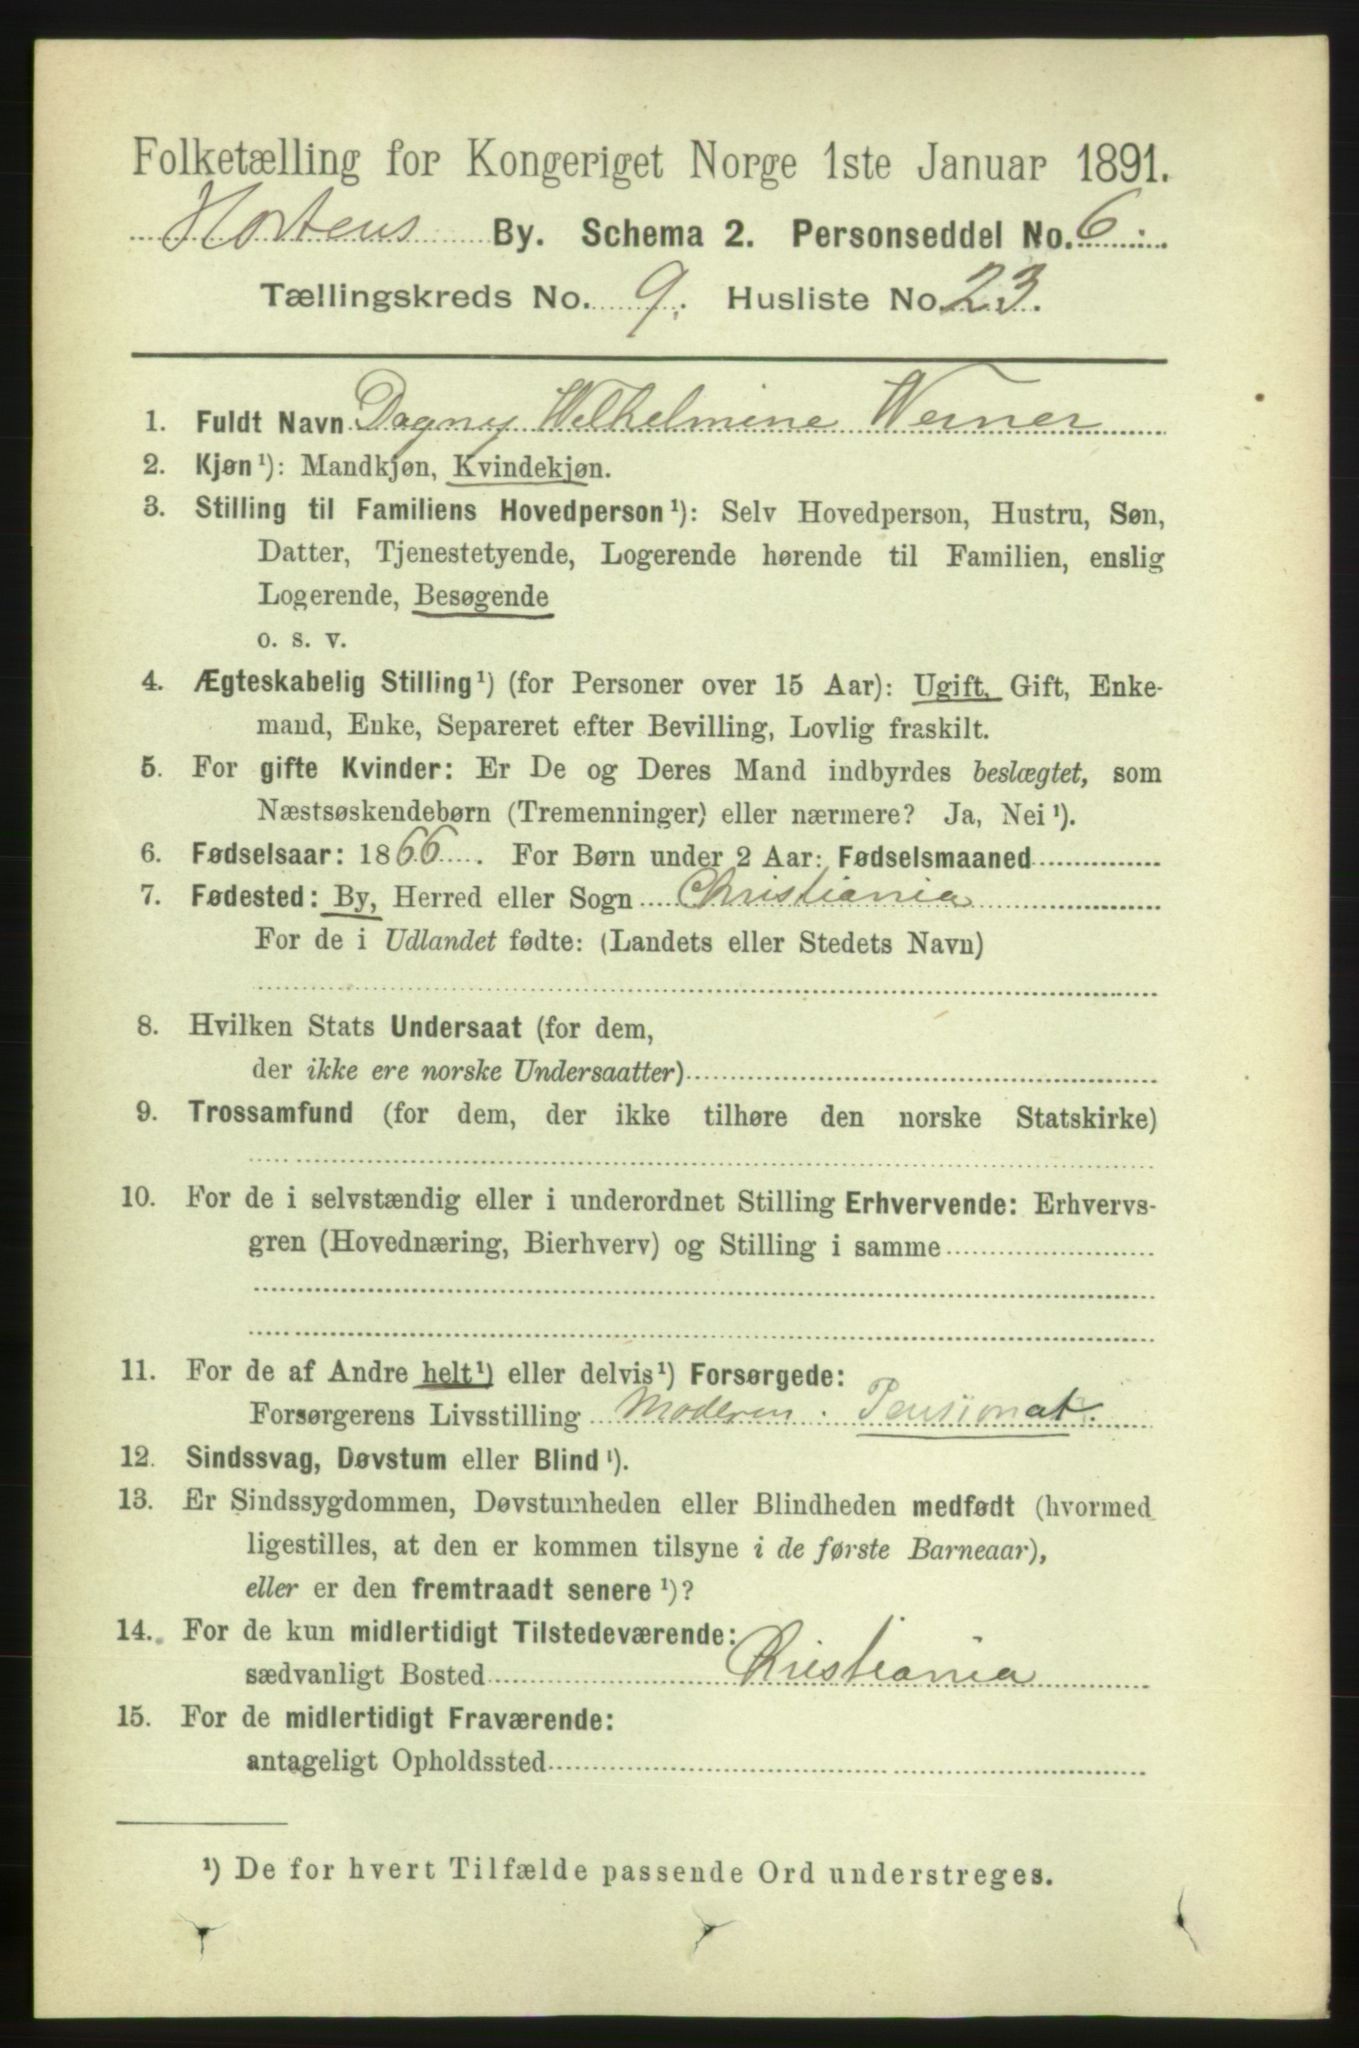 Folketælling for Kongeriget Norge 1ste Januar 1891.
Hortens By. Schema 2. Personseddel No. 6.
Tællingskreds No. 9. Husliste No. 23.
1. Fuldt Navn Dagny Wilhelmine Werner
2. Kjøn¹): Mandkjøn, Kvindekjøn.
3. Stilling til Familiens Hovedperson¹): Selv Hovedperson, Hustru, Søn,
Datter, Tjenestetyende, Logerende hørende til Familien, enslig
Logerende, Besøgende
o. s. v.
4. Ægteskabelig Stilling¹) (for Personer over 15 Aar): Ugift, Gift, Enke-
mand, Enke, Separeret efter Bevilling, Lovlig fraskilt.
5. For gifte Kvinder: Er De og Deres Mand indbyrdes beslægtet, som
Næstsøskendebørn (Tremenninger) eller nærmere? Ja, Nei¹).
6. Fødselsaar: 1866. For Børn under 2 Aar: Fødselsmaaned
7. Fødested: By, Herred eller Sogn Christiania
For de i Udlandet fødte: (Landets eller Stedets Navn)
8. Hvilken Stats Undersaat (for dem,
der ikke ere norske Undersaatter)
9. Trossamfund (for dem, der ikke tilhøre den norske Statskirke)
10. For de i selvstændig eller i underordnet Stilling Erhvervende: Erhvervs-
gren (Hovednæring, Bierhverv) og Stilling i samme
11. For de af Andre helt¹) eller delvis¹) Forsørgede:
Forsørgerens Livsstilling Moderen. Pensionat.
12. Sindssvag, Døvstum eller Blind¹).
13. Er Sindssygdommen, Døvstumheden eller Blindheden medfødt (hvormed
ligestilles, at den er kommen tilsyne i de første Barneaar),
eller er den fremtraadt senere¹)?
14. For de kun midlertidigt Tilstedeværende:
sædvanligt Bosted Christiania
15. For de midlertidigt Fraværende:
antageligt Opholdssted
¹) De for hvert Tilfælde passende Ord understreges.